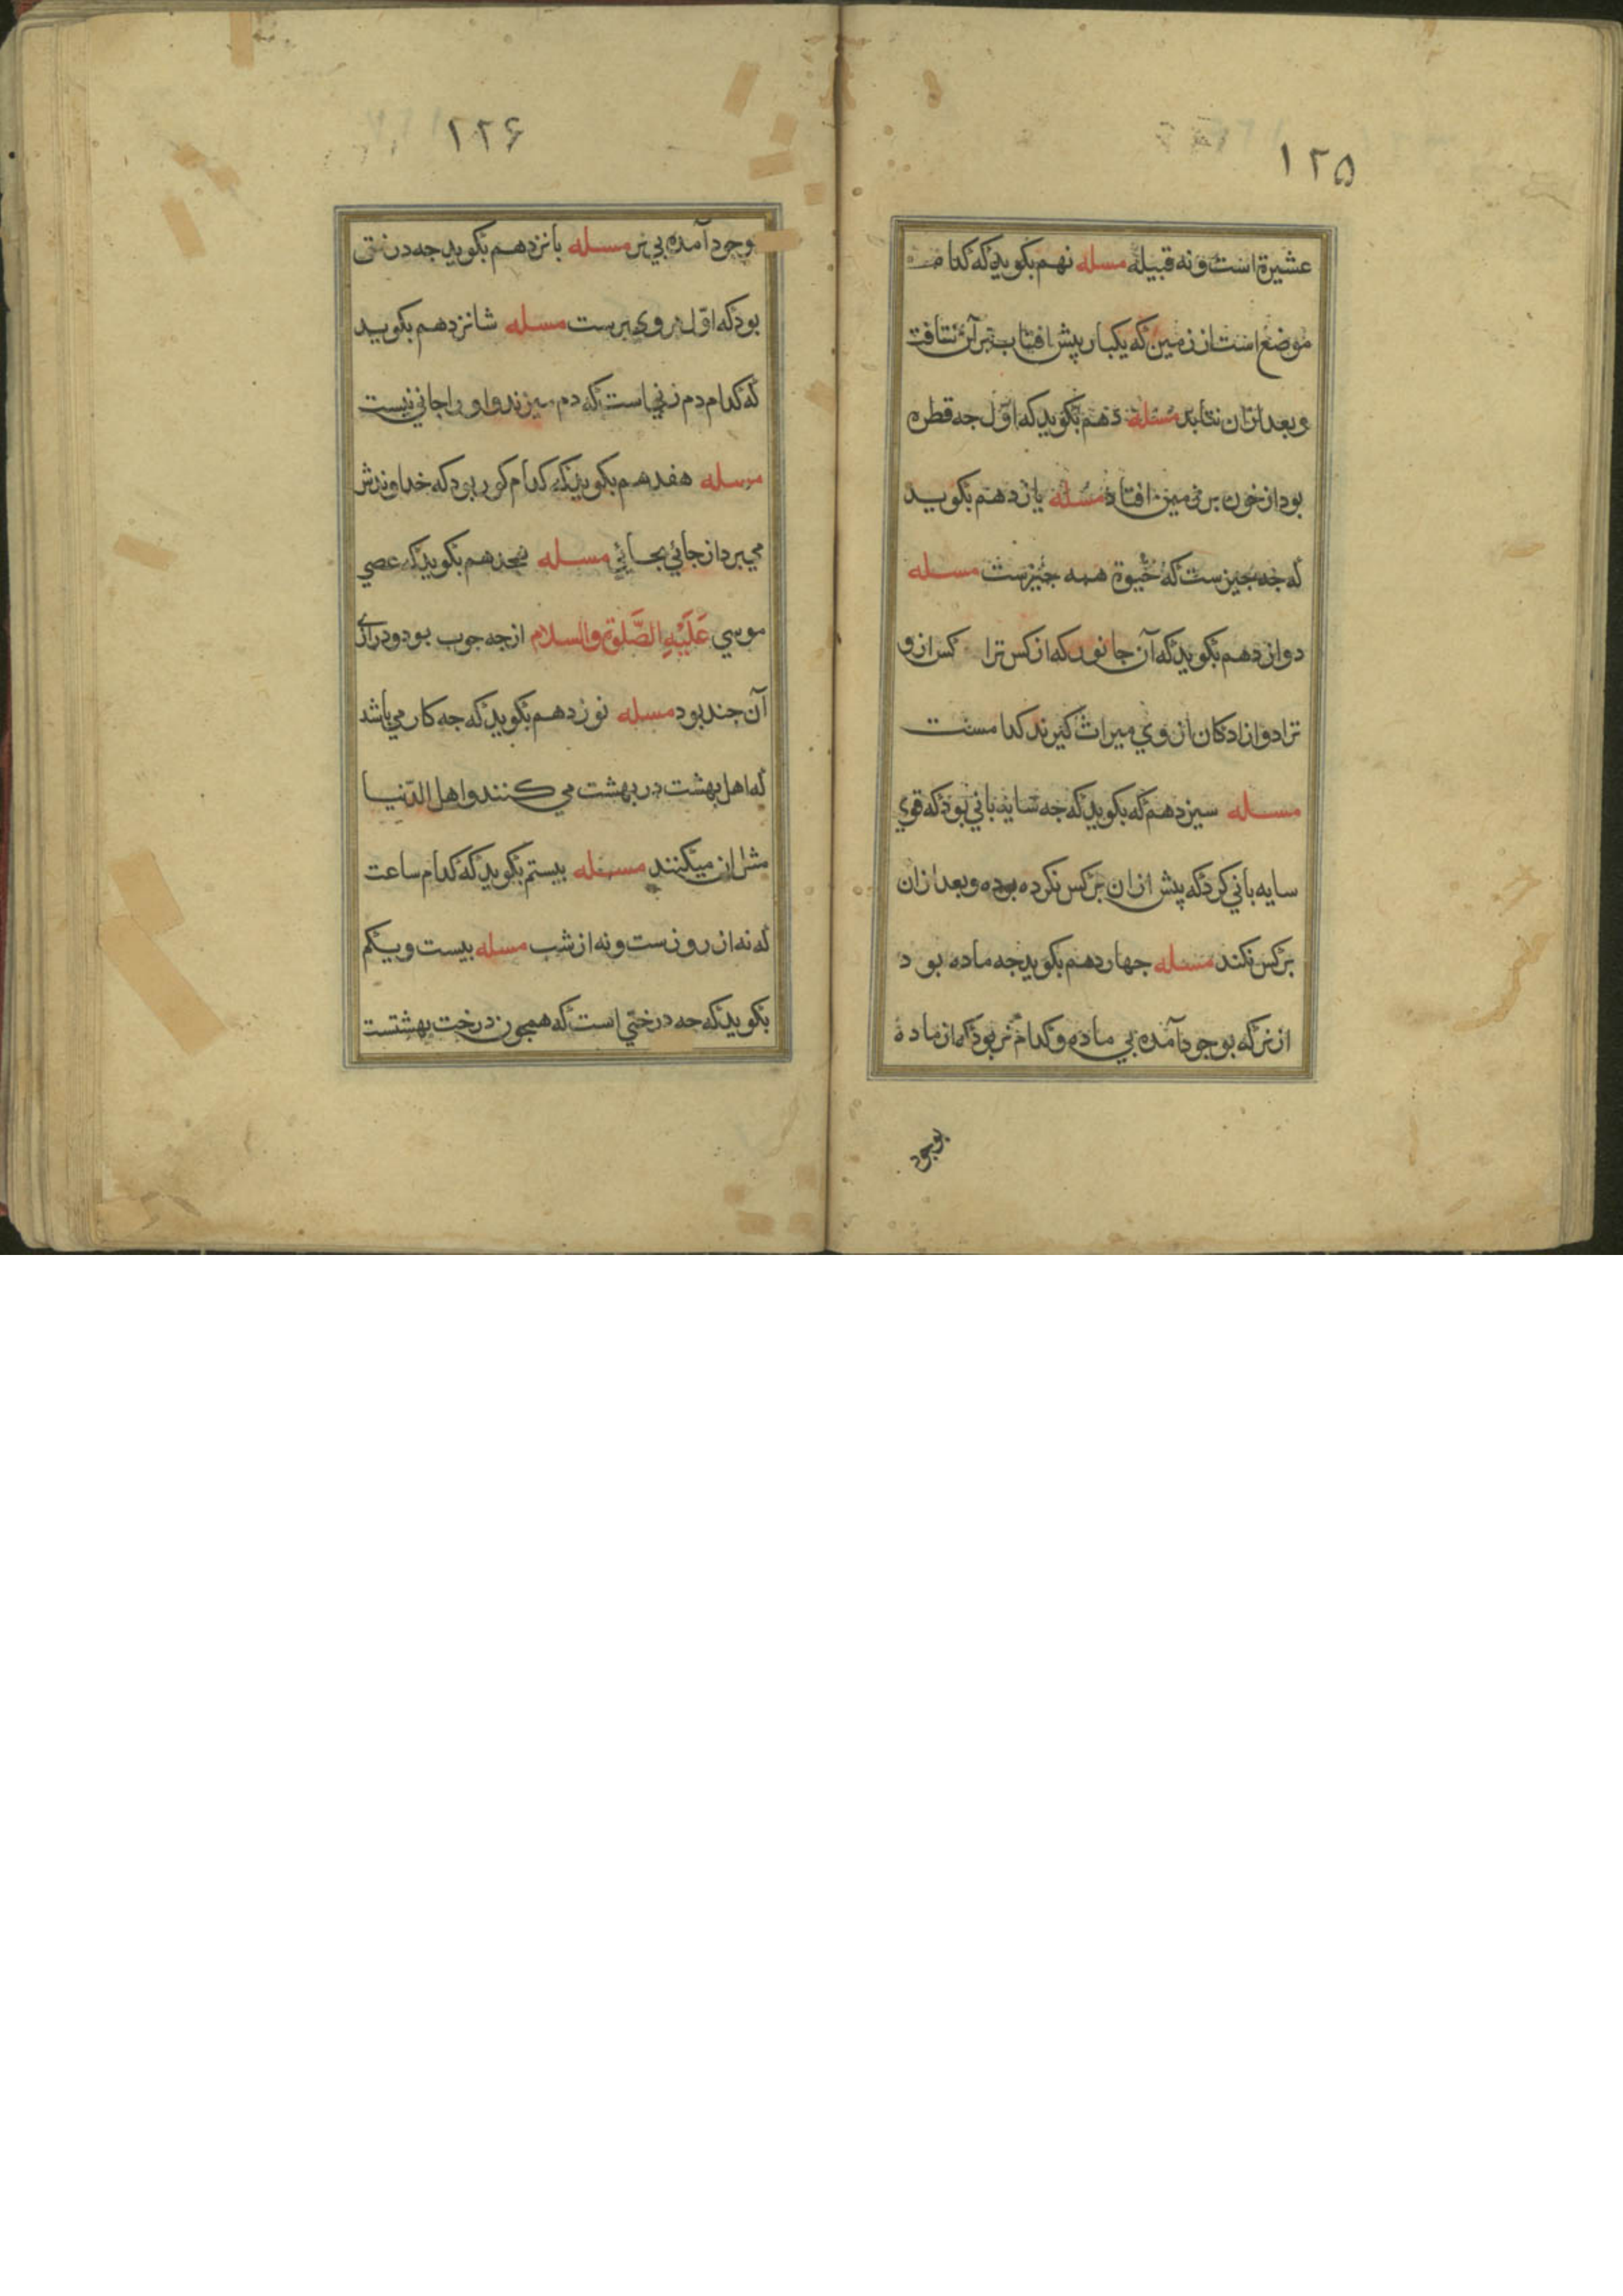 ۱۲۵
عشیرة است ونه قبیله مسله نهم بکوید که کدام
موضع است از زمین که یکبار پیش افتاب بر آن نتافت
و بعد ازان نتابد مسله دهم بکوید که اوّل جه قطره
بود از خون بر زمین افتاد مسله یازدهم بکوید
که جه جیزست که حیوة همه جیزست مسله
دوازدهم بکوید که آن جانور که از کس ترا کس ازو
ترا دوازادکان از وي میراث کیرند کدامست
مسله سیزدهم که بکوید که جه سایه باني بود که قوي
سایه باني کرد که پیش ازان بر کس نکرده بوده و بعد ازان
بر کس نکند مسله جهاردهم بکوید جه ماده بود
از نر که بوجود آمده بي ماده و کدام نر بود که از ماده
بوجود
۱۲۶
وجود آمده بي نر مسله بانزدهم بکوید جه درختي
بود که اوّل بروی برست مسله شانزدهم بکوید
که کدام دم زني است که دم میزند و او را جاني نیست
مسله هفدهم بکوید که کدام کور بود که خداوندش
مي برد از جائي بجائي مسله هجدهم بکوید که عصي
موسي عَلَیْهِ الصَّلوة والسلام از جه جوب بود و درازي
آن جند بود مسله نوزدهم بکوید که جه کار مي باشد
که اهل بهشت در بهشت مي کنند و اهل الدّنیا
مثل ان میکنند مسئله بیستم بکوید که کدام ساعت
که نه از روزست و نه از شب مسله بیست و یکم
بکوید که جه درختي است که همجون درخت بهشتست